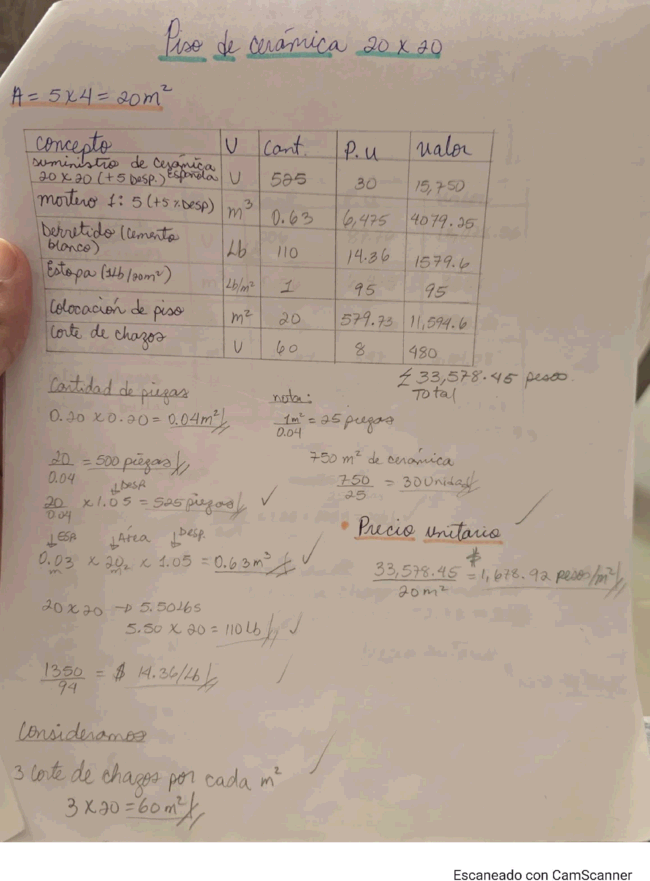 Piso de cerámica 20 x 20
A = 5 x 4 = 20m²
concepto U Cant. P.U Valor
suministro de cerámica Española
20 x 20 (+5 Desp.) U 525 30 15,750
mortero 1:5 (+5% Desp) m³ 0.63 6,475 4079.25
Derretido (Cemento blanco) Lb 110 14.36 1579.6
Estopa (1Lb/20m²) Lb/m² 1 95 95
Colocación de piso m² 20 579.73 11,594.6
Corte de chazos U 60 8 480
Σ 33,578.45 pesos
Total
Cantidad de piezas
0.20 x 0.20 = 0.04m²
nota:
1m²/0.04 = 25 piezas
20/0.04 = 500 piezas
750 m² de cerámica
750/25 = 30 Unidad
↓Desp
20/0.04 x 1.05 = 525 piezas ✓
↓ESP ↓Área ↓Desp.
0.03 m x 20 m² x 1.05 = 0.63m³ ✓
• Precio unitario
33,578.45/20m² = $1,678.92 pesos/m²
20 x 20 → 5.50Lbs
5.50 x 20 = 110 lb ✓
1350/94 = $ 14.36/Lb
Consideramos
3 Corte de chazos por cada m²
3 x 20 = 60m²
Escaneado con CamScanner